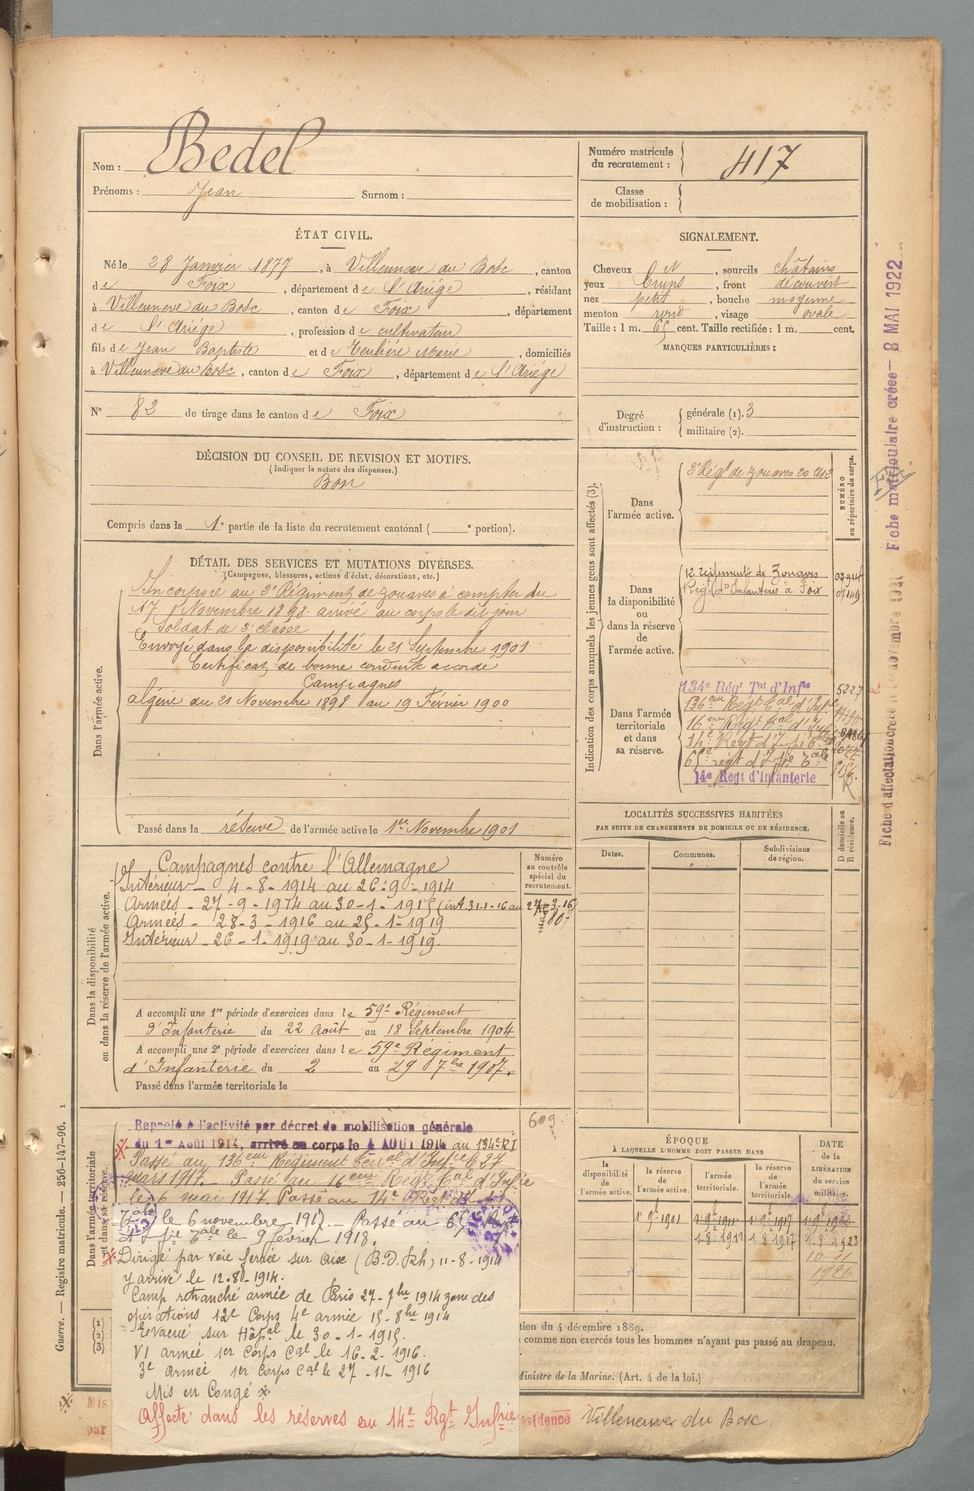 Nom : Bedel
Prénoms : Jean Surnom :
Numéro matricule du recrutement : 417
Classe de mobilisation :
ÉTAT CIVIL.
Né le 28 Janvier 1877, à Villeneuve du Bosc, canton
de Foix, département de l'Ariège, résidant
à Villeneuve du Bosc, canton de Foix, département
de l'Ariège, profession de cultivateur
fils de Jean Baptiste et de Marie, domiciliés
à Villeneuve du Bosc, canton de Foix, département de l'Ariège
N° 82 de tirage dans le canton de Foix
SIGNALEMENT.
Cheveux, sourcils châtains
yeux, front découvert
nez petit, bouche moyenne
menton rond, visage ovale
Taille : 1 m. 65 cent. Taille rectifiée : 1 m. cent.
MARQUES PARTICULIÈRES :
Degré d'instruction : générale (1). 3
militaire (2).
DÉCISION DU CONSEIL DE REVISION ET MOTIFS.
(Indiquer la nature des dispenses.)
Bon
Compris dans la 1e partie de la liste du recrutement cantonal ( e portion).
DÉTAIL DES SERVICES ET MUTATIONS DIVERSES.
(Campagnes, blessures, actions d'éclat, décorations, etc.)
Dans l'armée active.
Incorporé au 3e Régiment de zouaves à compter du
17 Novembre 1898 arrivé au corps le dit jour
Soldat de 2e classe
Envoyé dans la disponibilité le 21 Septembre 1901
Certificat de bonne conduite accordé
Campagnes
Algérie du 21 Novembre 1898 au 19 Février 1900
Passé dans la réserve de l'armée active le 1er Novembre 1901
Indication des corps auxquels les jeunes gens sont affectés (3).
NUMÉRO au répertoire du corps.
Dans l'armée active.
3e Régt de zouaves
Dans la disponibilité ou dans la réserve de l'armée active.
Régiment de Zouaves
Régt d'Infanterie à Foix
Dans l'armée territoriale et dans sa réserve.
134e Régt Tal d'Infie
136eme Régt tal d'Infie
16eme Régt tal d'Inf
14e Régt d'Infie
65e régt d'Infie
14e Régt d'Infanterie
Dans la disponibilité ou dans la réserve de l'armée active.
Numéro au contrôle spécial du recrutement.
Campagnes contre l'Allemagne
Intérieur - 4-8-1914 au 26-9-1914
Armées - 27-9-1914 au 30-1-1915 (int 31-1-16 au 27-3-16)
Armées - 28-3-1916 au 25-1-1919
Intérieur - 26-1-1919 au 30-1-1919
A accompli une 1re période d'exercices dans le 59e Régiment
d'Infanterie du 22 Août au 18 Septembre 1904
A accompli une 2e période d'exercices dans le 59e Régiment
d'Infanterie du 2 au 29 7bre 1907.
Passé dans l'armée territoriale le
LOCALITÉS SUCCESSIVES HABITÉES
PAR SUITE DE CHANGEMENTS DE DOMICILE OU DE RÉSIDENCE.
Dates. Communes. Subdivisions de région. D domicile ou R résidence.
Dans l'armée territoriale et dans sa réserve.
609
Rappelé à l'activité par décret de mobilisation générale
du 1er Août 1914, arrivé au corps le 4 AOUT 1914 au 134e RI
Passé au 136eme Régiment territ d'Infie le 27
mars 1917. Passé au 16eme Régt tal d'Infie
le 6 mai 1917 Passé au 14e Régt d'Inf
le 6 novembre 1917. Passé au 65e
le 9 février 1918.
Dirigé par voie ferrée sur (B.D. Rh) 11-8-1914
y arrivé le 12-8-1914.
Camp retranché armée de Paris 27-7bre 1914 zone des
opérations 12e Corps 4e armée 15-8bre 1914
Evacué sur Hôpal le 30-1-1915.
VI armée 1er Corps Cal le 16-2-1916.
3e Armée 1er Corps Cal le 27-11-1916
Mis en Congé
Affecté dans les réserves au 14e Rgt Infrie
résidence Villeneuve du Bosc
Mis
par
ÉPOQUE À LAQUELLE L'HOMME DOIT PASSER DANS
la disponibilité de l'armée active. la réserve de l'armée active. l'armée territoriale. la réserve de l'armée territoriale.
DATE de la LIBÉRATION du service militaire.
1 9bre 1901
1-8-1911 1-8-1917 1-8-1923
10-11
1926
(1)
(2)
(3)
tion du 4 décembre 1889.
comme non exercés tous les hommes n'ayant pas passé au drapeau.
Ministre de la Marine. (Art. 4 de la loi.)
Guerre. — Registre matricule. — 256-147-96.
Fiche matriculaire créée - 8 MAI 1922
Fiche d'affectation créée le